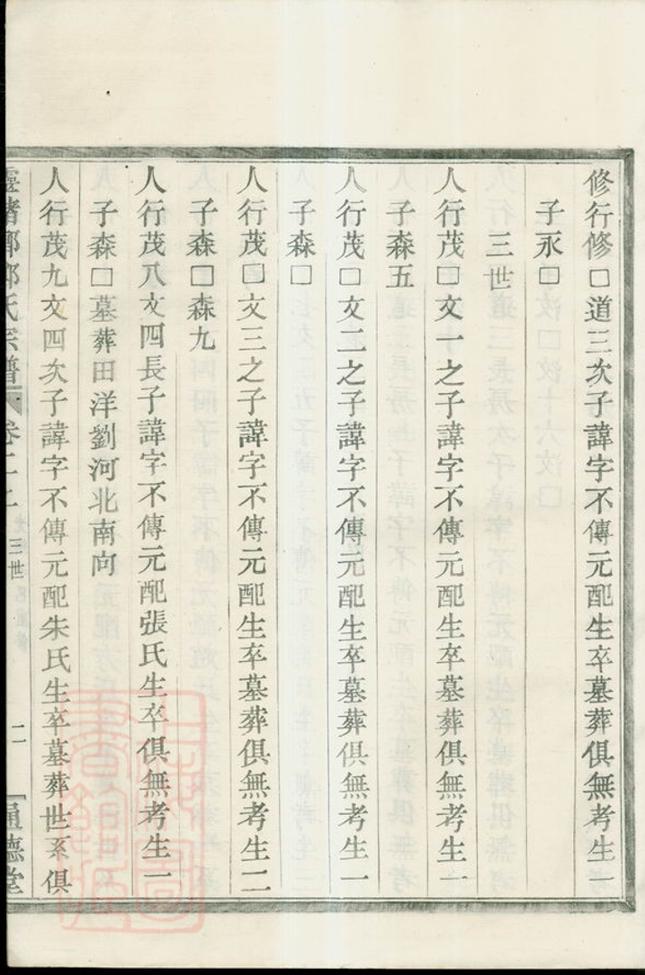 修行修□道三次子諱字不傳元配生卒墓葬俱無考生一
子永□
三世
人行茂□文一之子諱字不傳元配生卒墓葬俱無考生一
子森五
人行茂□文二之子諱字不傳元配生卒墓葬俱無考生一
子森□
人行茂□文三之子諱字不傳元配生卒墓葬俱無考生二
子森□森九
人行茂八文四長子諱字不傳元配張氏生卒俱無考生一
子森□墓葬田洋劉河北南向
人行茂九文四次子諱字不傳元配朱氏生卒墓葬世系俱
氏宗譜 卷二上 三世 二 通德堂